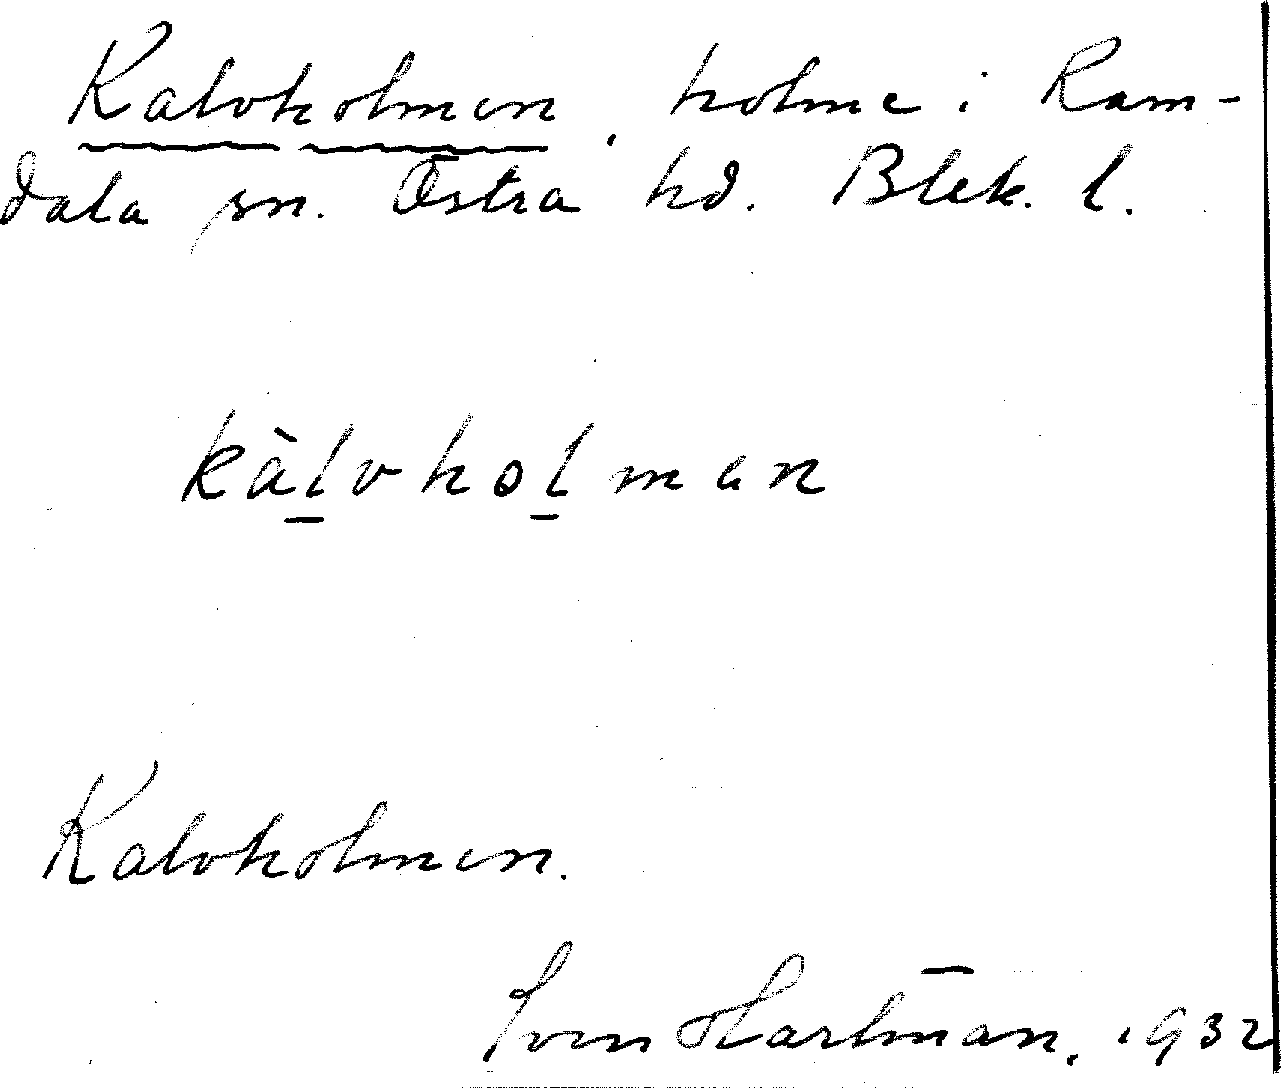 Kalvholmen, holme i Ram-
dala sn. Östra hd. Blek. l.
kàl̲vhol̲man
Kalvholmen.
Sven Hartman, 1932